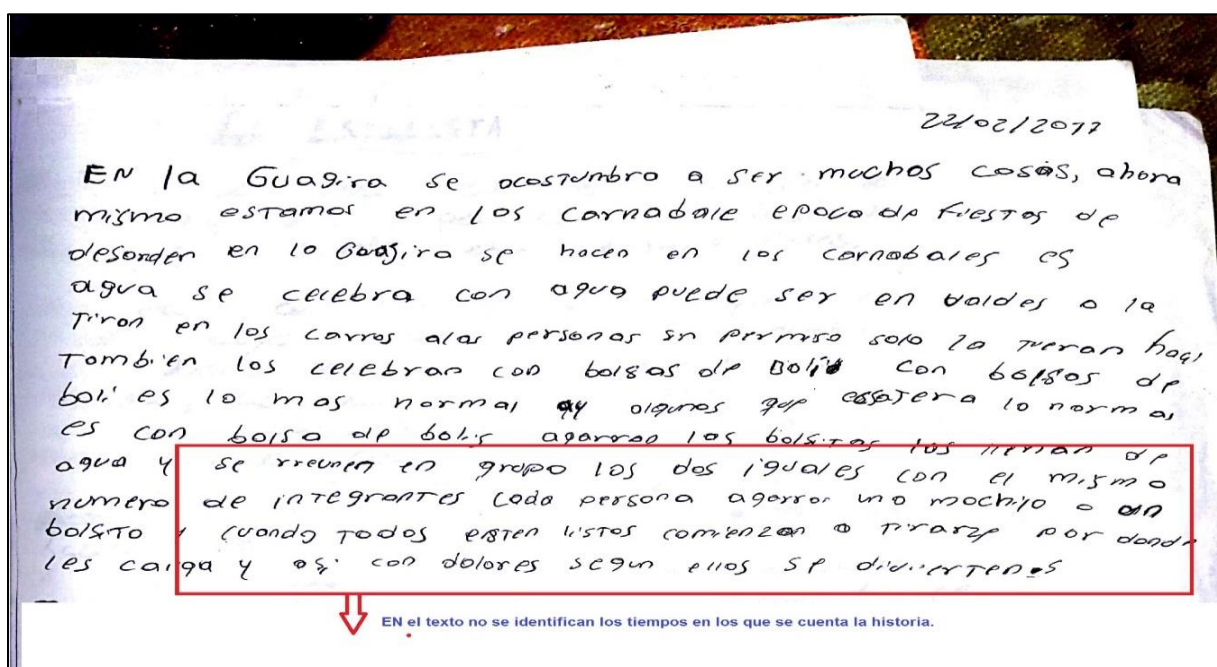 22/02/2011
EN la Guagira se acostumbra a ser muchas cosas, ahora
mismo estamos en los carnabale epoca de fiestas de
desorden en la Guagira se hacen en los carnabales es
agua se celebra con agua puede ser en valdes o la
tiran en los carros alas personas sin permiso solo la
Tambien los celebran con bolsas de Bolis con bolsas de
boli es lo mas normal ay algunos que lo normal
es con bolsa de bolis agarran las bolsitas las llenan de
agua y se rreunen en grupo los dos iguales con el mismo
numero de integrantes cada persona agarra una mochila o un
bolsito y cuando todos esten listos comienzan a tirarze por donde
les caiga y asi con dolores segun ellos se
EN el texto no se identifican los tiempos en los que se cuenta la historia.